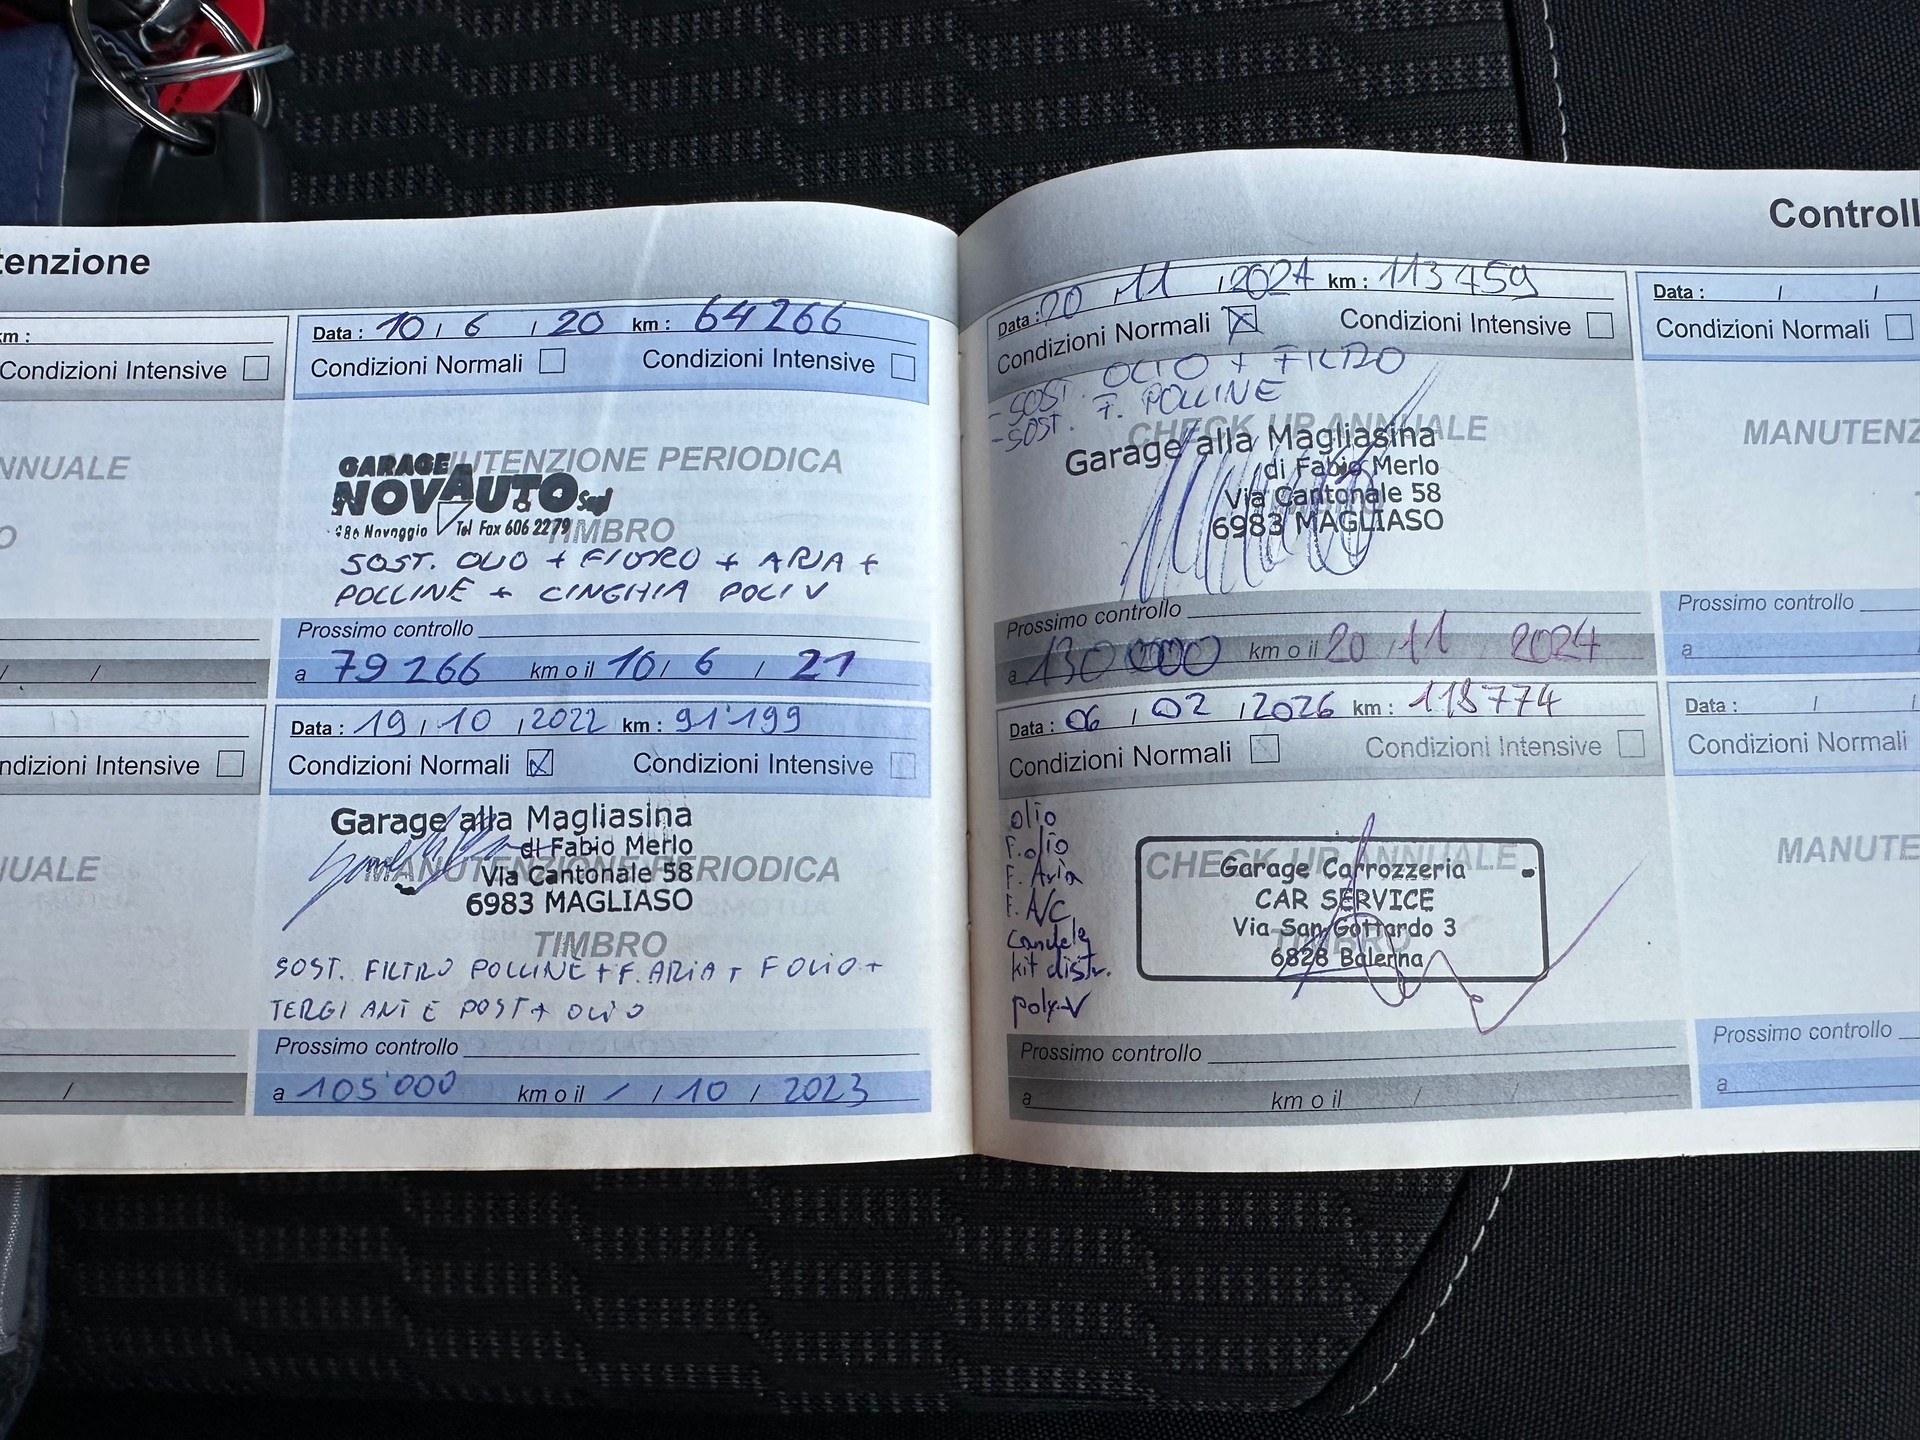 tenzione
km :
Condizioni Intensive
NNUALE
O
/ /
ndizioni Intensive
UALE
/
Data : 10 / 6 / 20 km : 64266
Condizioni Normali Condizioni Intensive
MANUTENZIONE PERIODICA
GARAGE
NOVAUTO Sagl
Novaggio Tel Fax 606 2279
TIMBRO
SOST. OLIO + FILTRO + ARIA +
POLLINE + CINGHIA POLI V
Prossimo controllo
a 79266 km o il 10 / 6 / 21
Data : 19 / 10 / 2022 km : 91'199
Condizioni Normali Condizioni Intensive
Garage alla Magliasina
di Fabio Merlo
MANUTENZIONE PERIODICA
Via Cantonale 58
6983 MAGLIASO
TIMBRO
SOST. FILTRO POLLINE + F. ARIA + F OLIO +
TERGI ANT E POST + OLIO
Prossimo controllo
a 105'000 km o il / / 10 / 2023
Controll
Data : 20 / 11 / 2024 km : 113459
Condizioni Normali Condizioni Intensive
- SOST. OLIO + FILTRO
- SOST. F. POLLINE
CHECK UP ANNUALE
Garage alla Magliasina
di Fabio Merlo
Via Cantonale 58
6983 MAGLIASO
Prossimo controllo
a 130000 km o il 20 / 11 / 2024
Data : 06 / 02 / 2026 km : 118774
Condizioni Normali Condizioni Intensive
olio
F. olio
F. Aria
F. A/C
Candele
kit distr.
poly-V
CHECK UP ANNUALE
Garage Carrozzeria
CAR SERVICE
Via San Gottardo 3
6828 Balerna
TIMBRO
Prossimo controllo
a km o il / /
Data : / /
Condizioni Normali
MANUTENZ
Prossimo controllo
a
Data : / /
Condizioni Normali
MANUTE
Prossimo controllo
a